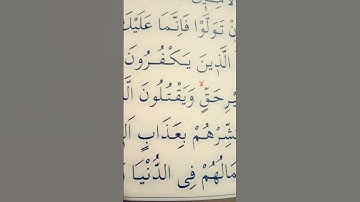 نْ تَوَلَّوْا فَاِنَّمَا عَلَيْكَ
الَّذ۪ينَ يَكْفُرُونَ
يْرِ حَقٍّۙ وَيَقْتُلُونَ الَّ
شِّرْهُمْ بِعَذَابٍ اَل۪
مَالُهُمْ فِي الدُّنْيَا وَ